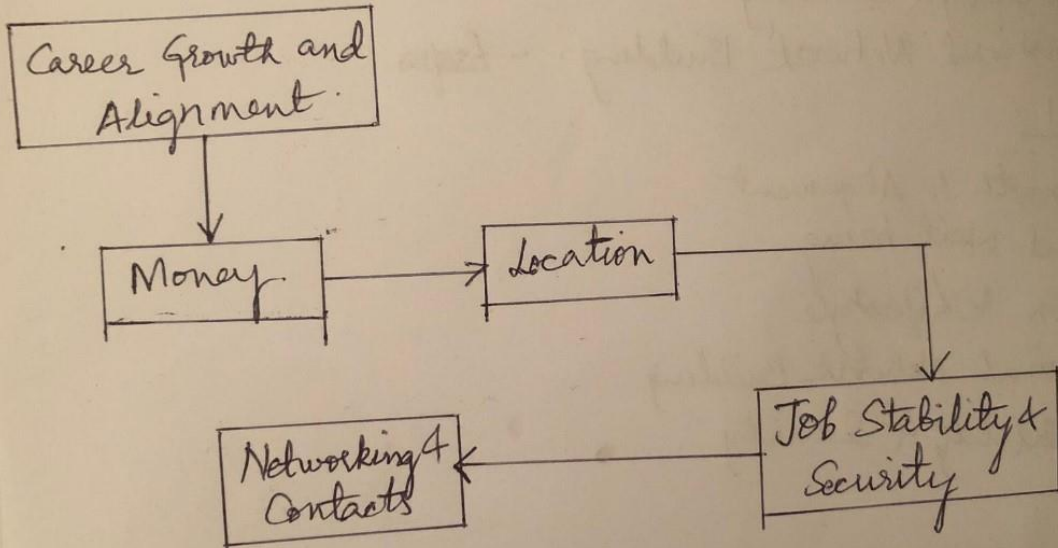 Career Growth and
Alignment.
Money.
Location
Job Stability &
Security
Networking &
Contacts